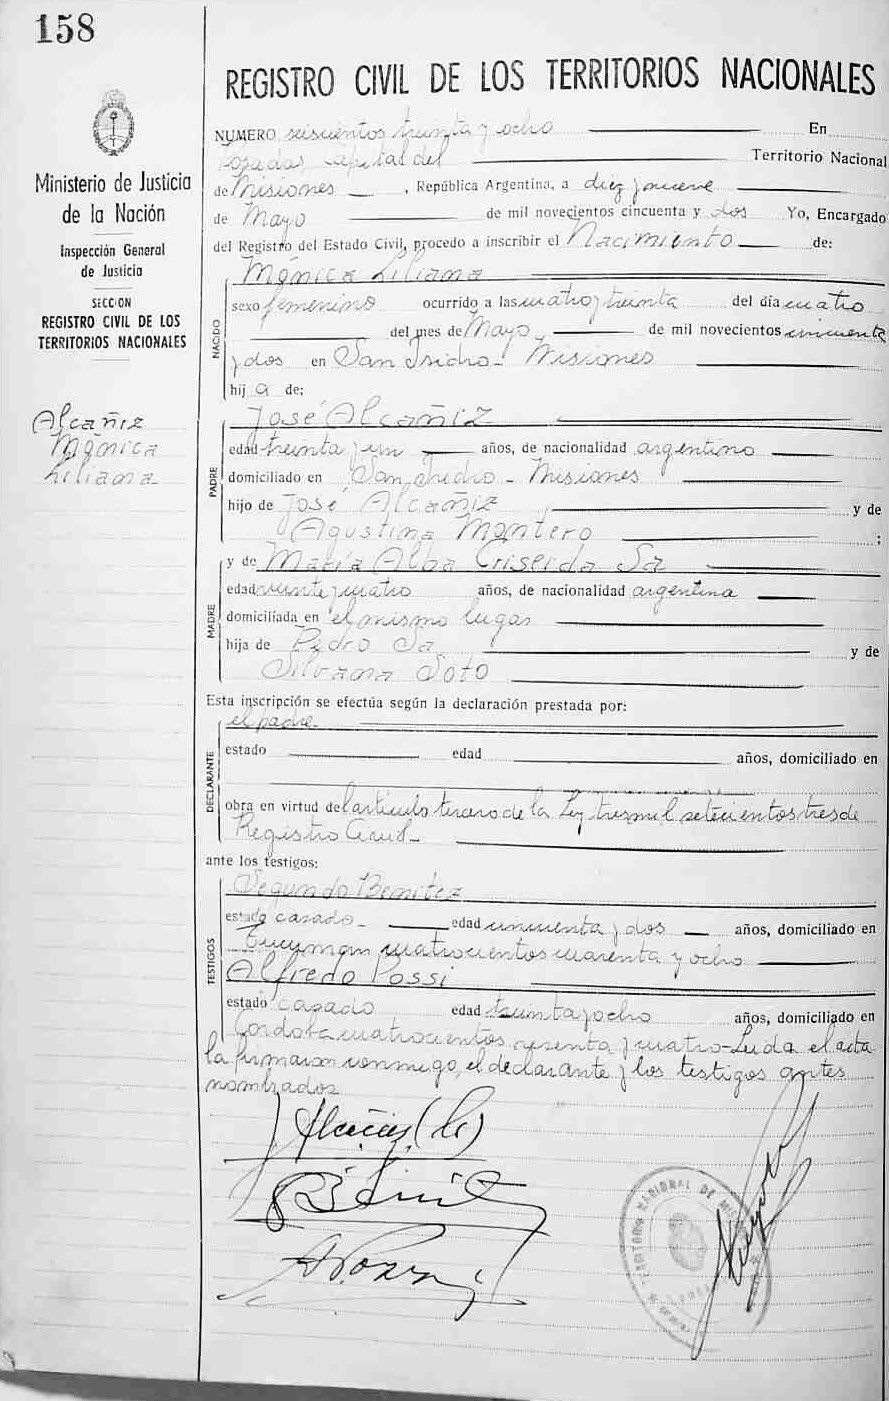 158
REGISTRO CIVIL DE LOS TERRITORIOS NACIONALES
Ministerio de Justicia
de la Nación
Inspección General
de Justicia
SECCION
REGISTRO CIVIL DE LOS
TERRITORIOS NACIONALES
Alcañiz
Mónica
Liliana
NUMERO seiscientos treinta y ocho En
Posadas, capital del Territorio Nacional
de Misiones, República Argentina, a diez y nueve
de Mayo de mil novecientos cincuenta y dos Yo, Encargado
del Registro del Estado Civil, procedo a inscribir el Nacimiento de:
NACIDO
Mónica Liliana
sexo femenino ocurrido a las cuatro y treinta del día cuatro
del mes de Mayo de mil novecientos cincuenta
y dos en San Isidro - Misiones
hij a de:
PADRE
José Alcañiz
edad treinta y un años, de nacionalidad argentino
domiciliado en San Isidro - Misiones
hijo de José Alcañiz y de
Agustina Montero ;
MADRE
y de María Alba Criselda Sa
edad veinte y cuatro años, de nacionalidad argentina
domiciliada en el mismo lugar
hija de Pedro Sa y de
Silvana Soto
Esta inscripción se efectúa según la declaración prestada por:
DECLARANTE
el padre.
estado edad años, domiciliado en
obra en virtud del artículo tercero de la Ley tres mil setecientos tres de
Registro Civil -
ante los testigos:
TESTIGOS
Segundo Benitez
estado casado - edad cincuenta y dos años, domiciliado en
Tucuman cuatrocientos cuarenta y ocho
Alfredo Possi
estado casado edad treinta y ocho años, domiciliado en
Cordoba cuatrocientos y cuatro - Leida el acta
la firmaron conmigo, el declarante y los testigos antes
nombrados
TERRITORIO NACIONAL DE